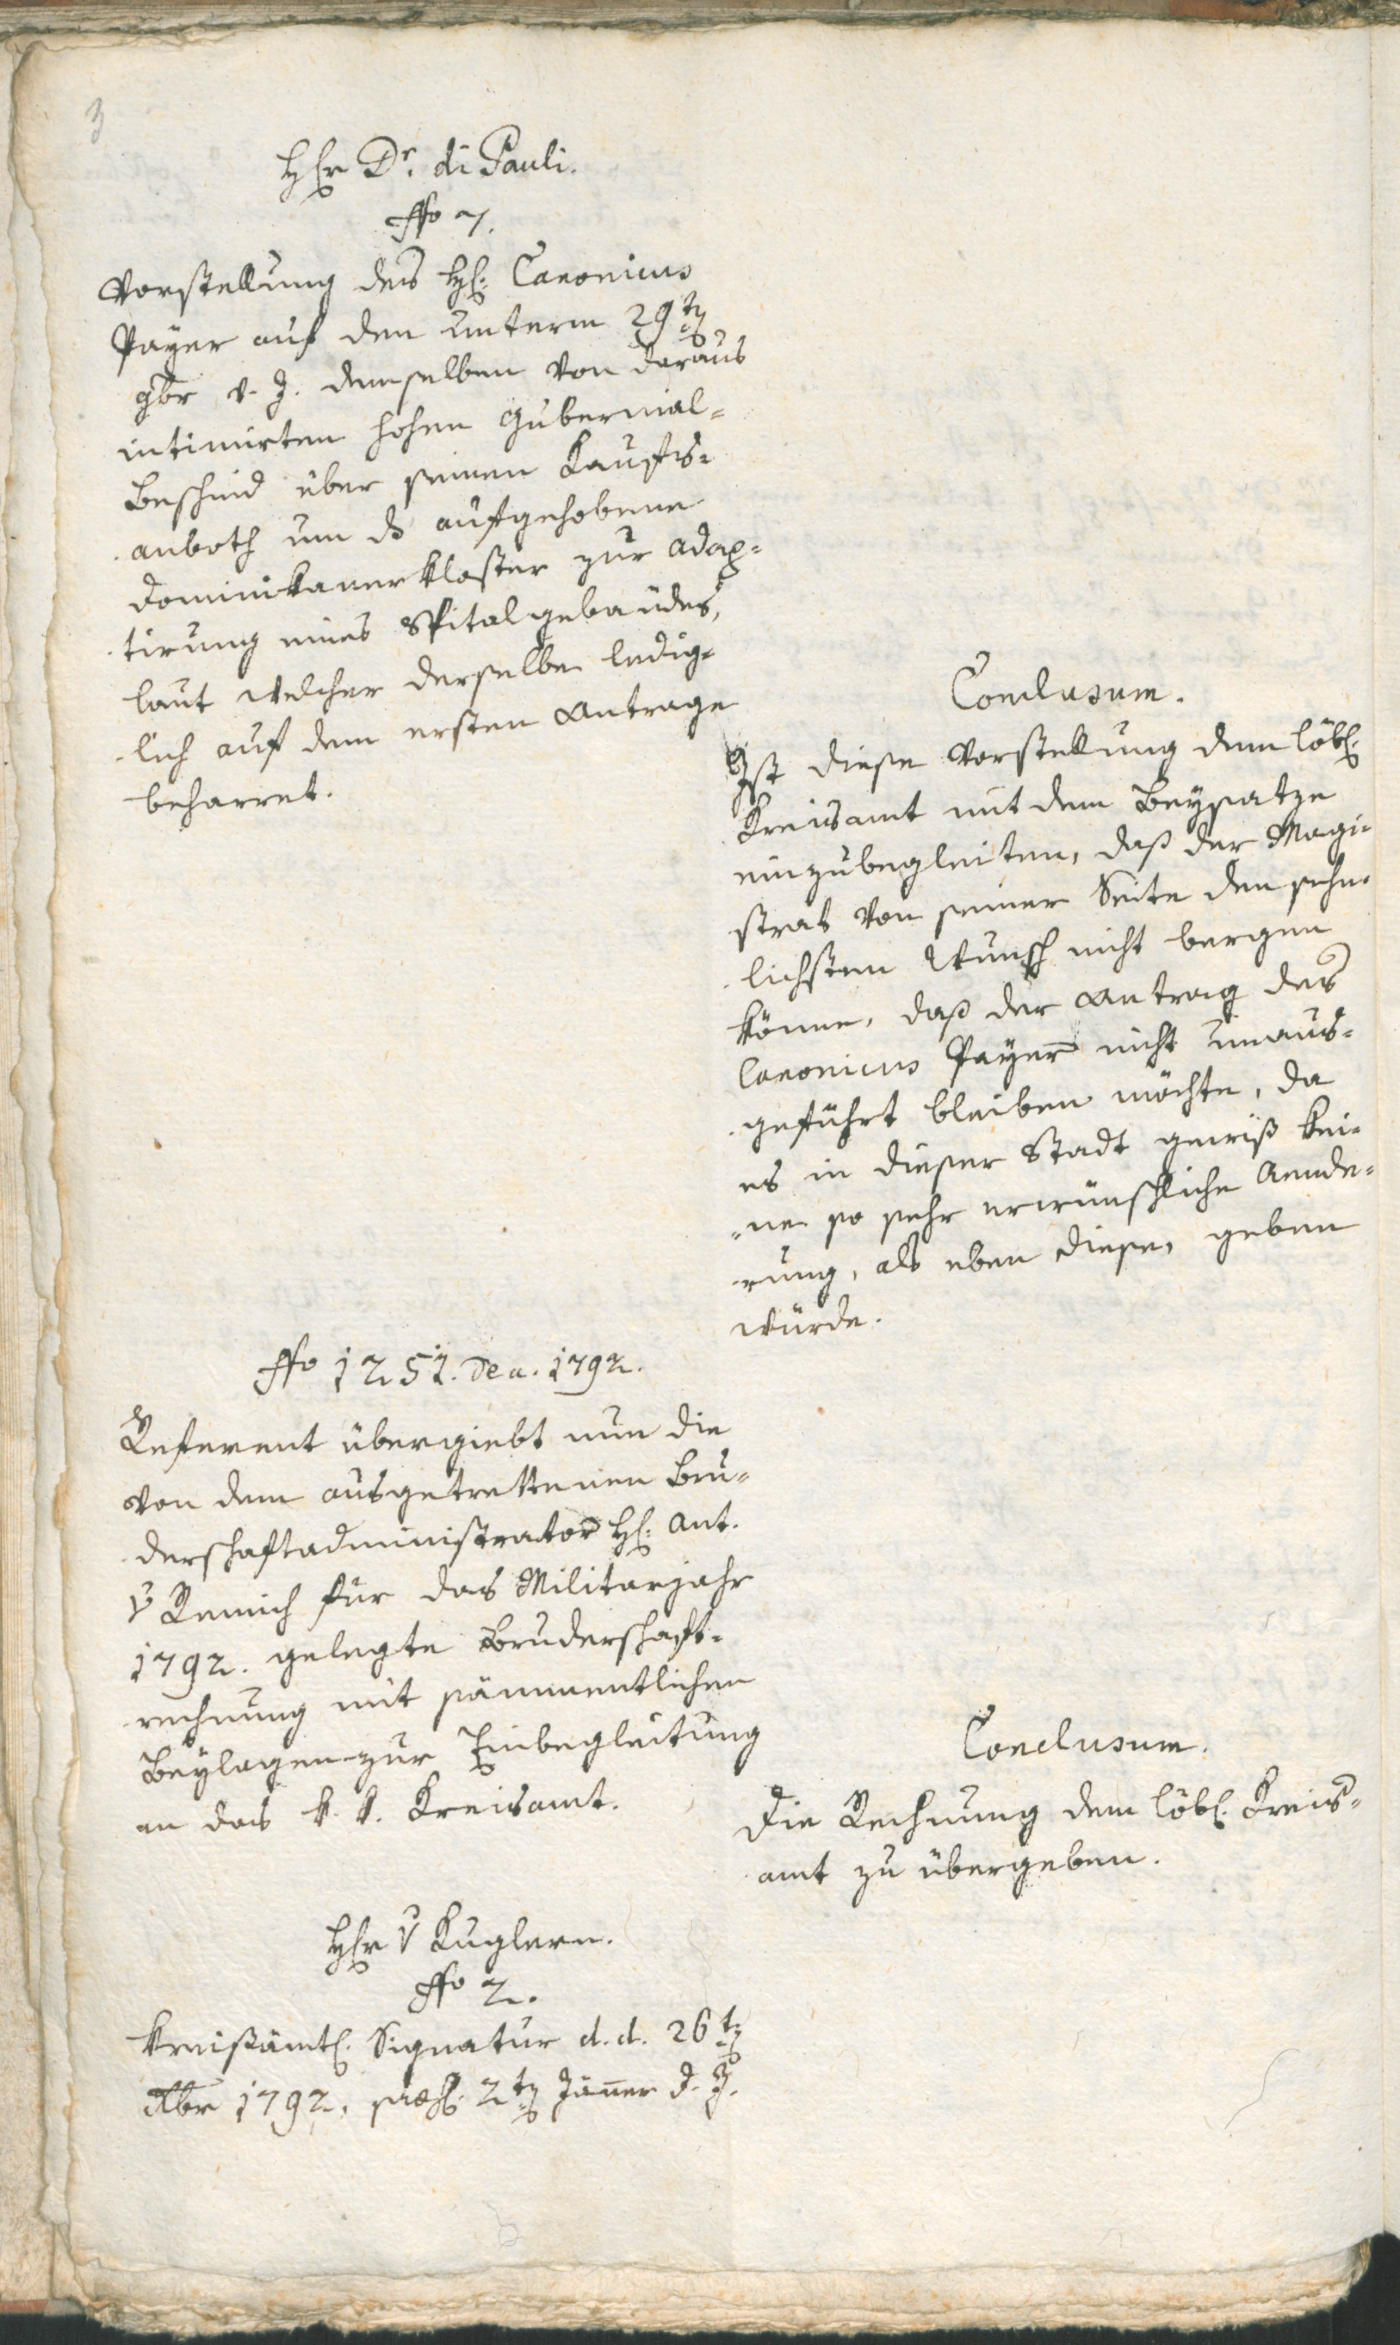 3
Hr Dr. di Pauli.
No 7.
Vorstellung des H: Canonicus
Payer auf den unterm 29t
9br v. J. demselben von daraus
intimirten hohen Gubernial=
Bescheid über seinen Kaufs=
anboth um d aufgehobene
Dominikanerkloster zur adap=
tirung eines Spitalgebäudes,
laut welcher derselbe ledig=
lich auf dem ersten Antrage
beharret.
Conclusum.
Ist diese Vorstellung dem löbl:
Kreisamt mit dem Beysatze
einzubegleiten, daß der Magi=
strat von seiner Seite den sehn=
lichsten Wunsch nicht bergen
könne, daß der Antrag des
Canonicus Payer nicht unaus=
geführt bleiben möchte, da
es in dieser Stadt gewiß kei=
ne so sehr erwünschliche Aende=
rung, als eben diese, geben
würde.
No 1251. de a. 1792.
Referent übergiebt nun die
von dem ausgetrettenen Bru=
derschaftadministrator H: Ant.
v Remich für das Militarjahr
1792. gelegte Bruderschaft=
rechnung mit sämmentlichen
Beylagen zur Einbegleitung
an das k. k. Kreisamt.
Conclusum.
Die Rechnung dem löbl. Kreis=
amt zu übergeben.
Hr v Kuglern.
No 2.
Kreißämtl. Signatur d. d. 26t
Xbr 1792, præs: 2t Jäner d. J.